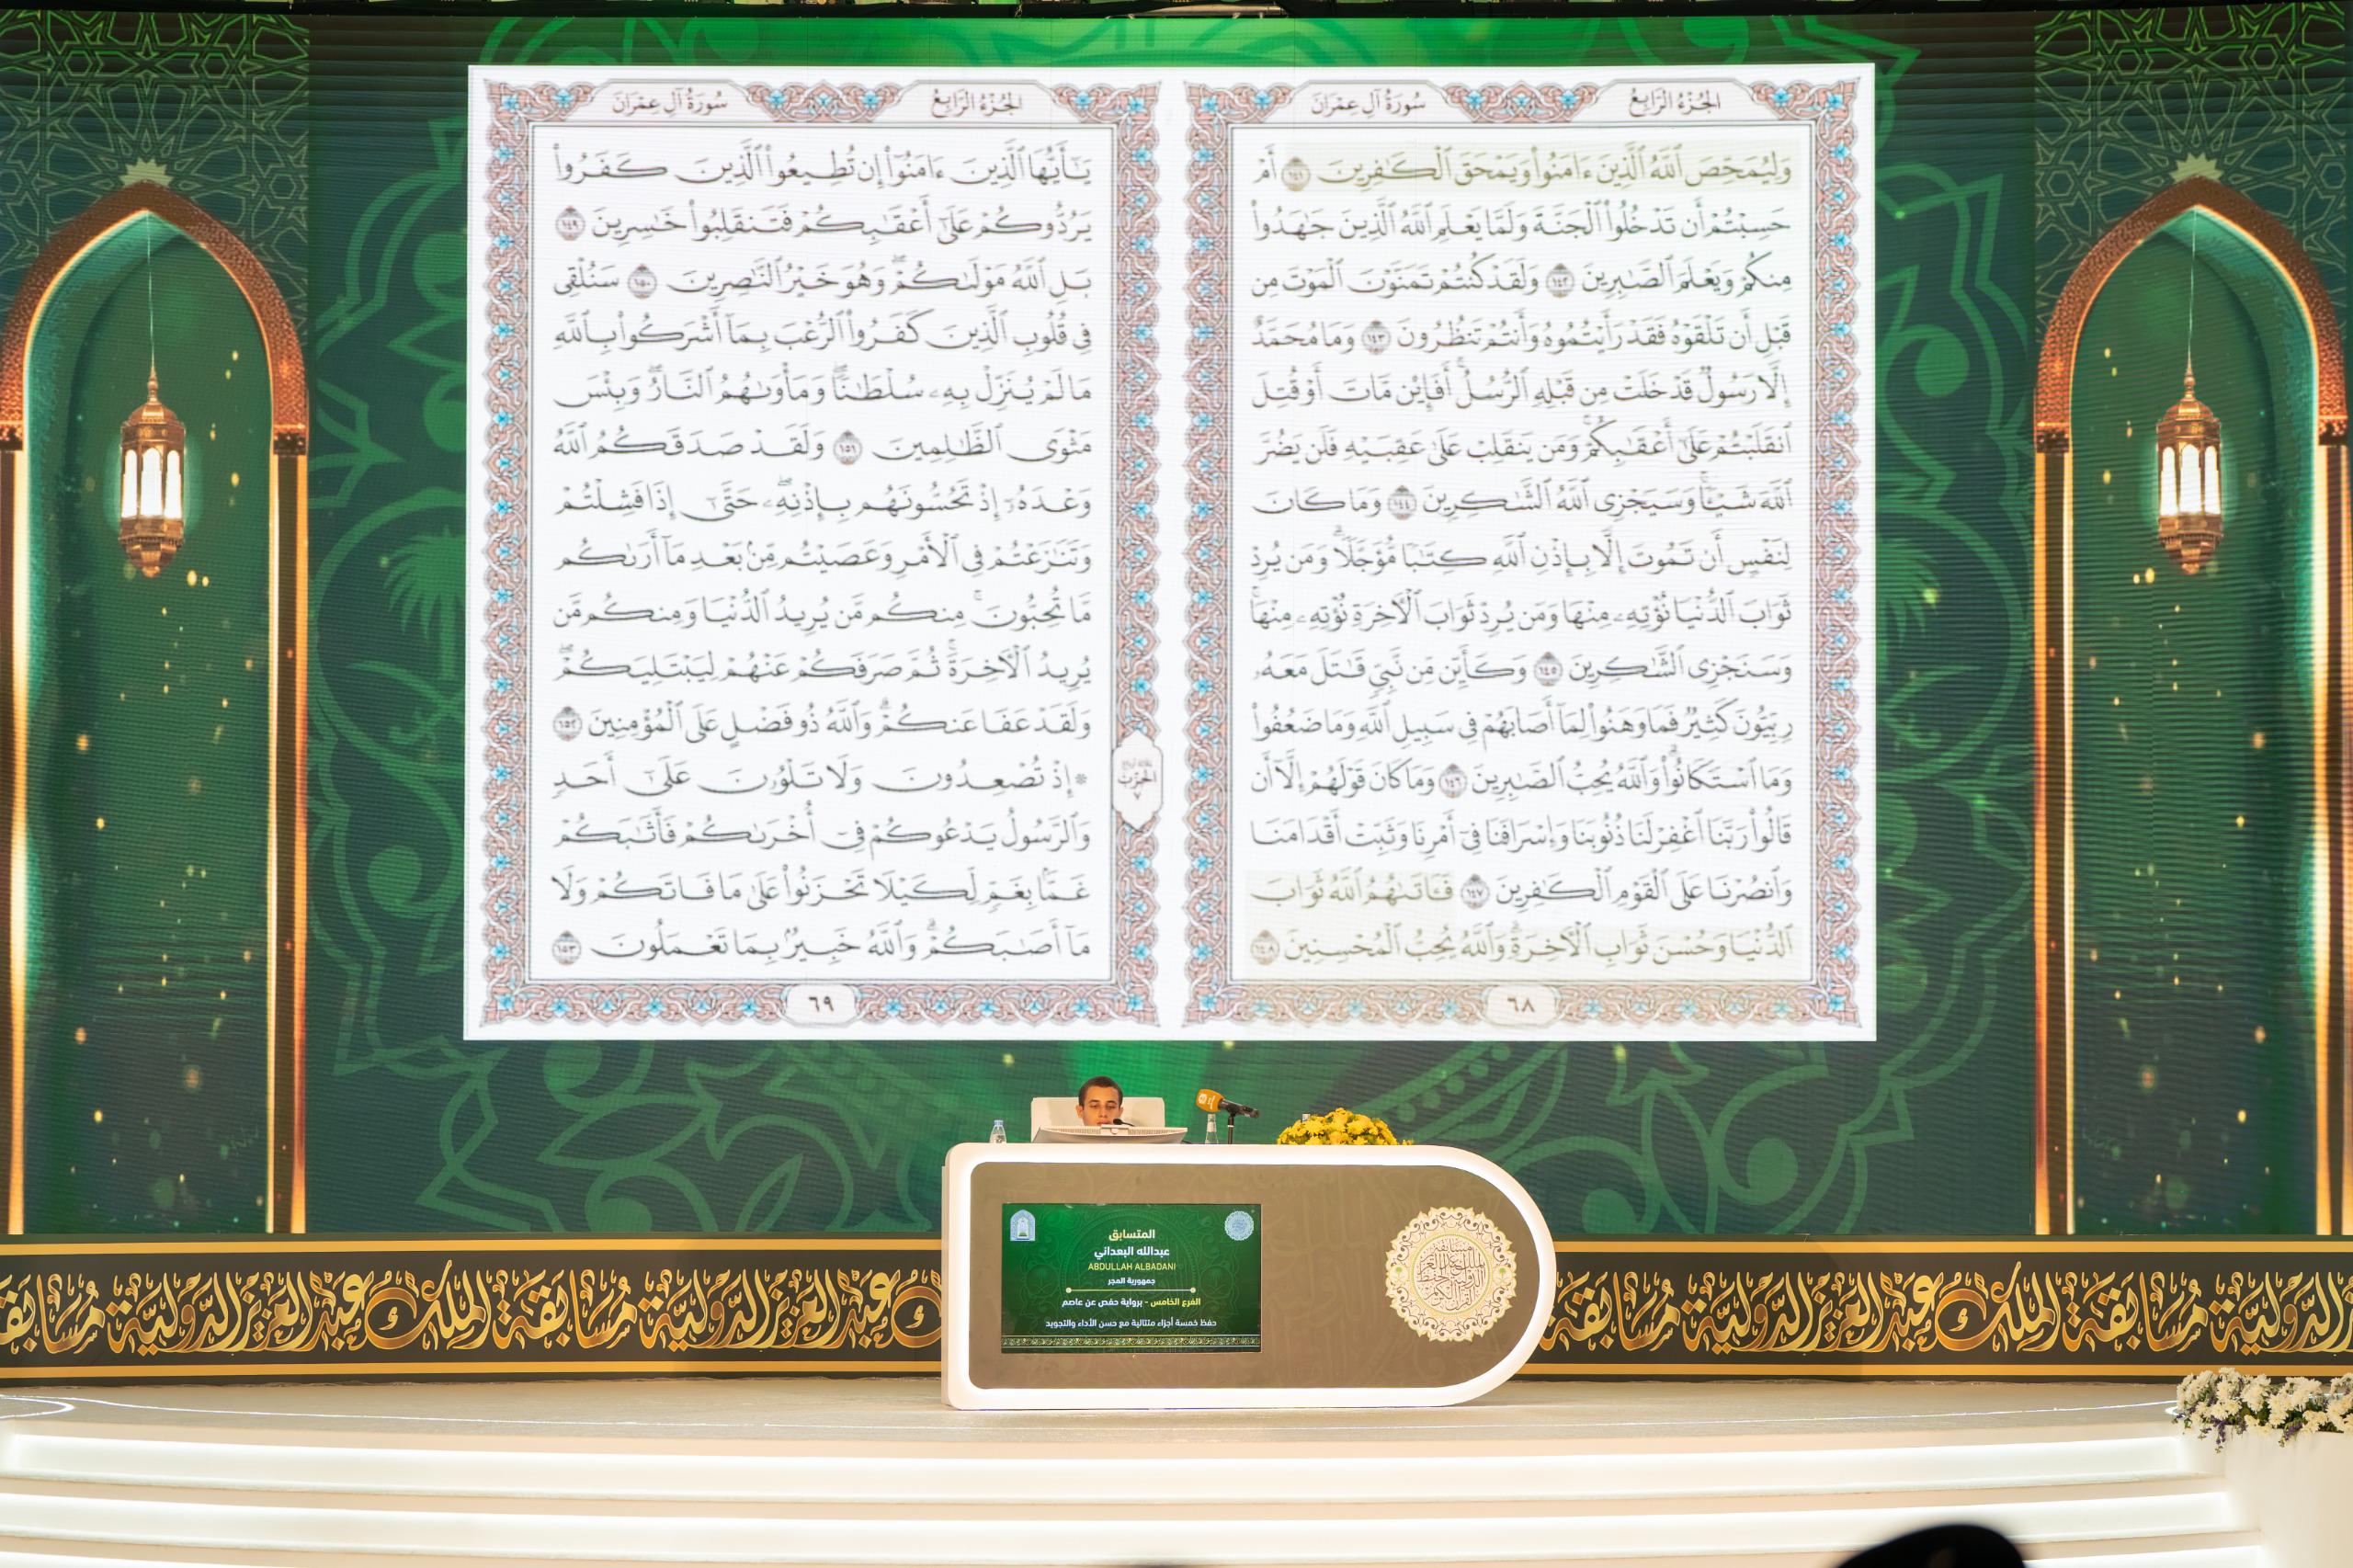 سُورَةُ آلِ عِمْرَانَ
الجُزْءُ الرَّابِعُ
وَلِيُمَحِّصَ ٱللَّهُ ٱلَّذِينَ ءَامَنُوا۟ وَيَمْحَقَ ٱلْكَـٰفِرِينَ ١٤١ أَمْ
حَسِبْتُمْ أَن تَدْخُلُوا۟ ٱلْجَنَّةَ وَلَمَّا يَعْلَمِ ٱللَّهُ ٱلَّذِينَ جَـٰهَدُوا۟
مِنكُمْ وَيَعْلَمَ ٱلصَّـٰبِرِينَ ١٤٢ وَلَقَدْ كُنتُمْ تَمَنَّوْنَ ٱلْمَوْتَ مِن
قَبْلِ أَن تَلْقَوْهُ فَقَدْ رَأَيْتُمُوهُ وَأَنتُمْ تَنظُرُونَ ١٤٣ وَمَا مُحَمَّدٌ
إِلَّا رَسُولٌ قَدْ خَلَتْ مِن قَبْلِهِ ٱلرُّسُلُ ۚ أَفَإِي۟ن مَّاتَ أَوْ قُتِلَ
ٱنقَلَبْتُمْ عَلَىٰٓ أَعْقَـٰبِكُمْ ۚ وَمَن يَنقَلِبْ عَلَىٰ عَقِبَيْهِ فَلَن يَضُرَّ
ٱللَّهَ شَيْـًٔا ۗ وَسَيَجْزِى ٱللَّهُ ٱلشَّـٰكِرِينَ ١٤٤ وَمَا كَانَ
لِنَفْسٍ أَن تَمُوتَ إِلَّا بِإِذْنِ ٱللَّهِ كِتَـٰبًا مُّؤَجَّلًا ۗ وَمَن يُرِدْ
ثَوَابَ ٱلدُّنْيَا نُؤْتِهِۦ مِنْهَا وَمَن يُرِدْ ثَوَابَ ٱلْـَٔاخِرَةِ نُؤْتِهِۦ مِنْهَا ۚ
وَسَنَجْزِى ٱلشَّـٰكِرِينَ ١٤٥ وَكَأَيِّن مِّن نَّبِىٍّ قَـٰتَلَ مَعَهُۥ
رِبِّيُّونَ كَثِيرٌ فَمَا وَهَنُوا۟ لِمَآ أَصَابَهُمْ فِى سَبِيلِ ٱللَّهِ وَمَا ضَعُفُوا۟
وَمَا ٱسْتَكَانُوا۟ ۗ وَٱللَّهُ يُحِبُّ ٱلصَّـٰبِرِينَ ١٤٦ وَمَا كَانَ قَوْلَهُمْ إِلَّآ أَن
قَالُوا۟ رَبَّنَا ٱغْفِرْ لَنَا ذُنُوبَنَا وَإِسْرَافَنَا فِىٓ أَمْرِنَا وَثَبِّتْ أَقْدَامَنَا
وَٱنصُرْنَا عَلَى ٱلْقَوْمِ ٱلْكَـٰفِرِينَ ١٤٧ فَـَٔاتَىٰهُمُ ٱللَّهُ ثَوَابَ
ٱلدُّنْيَا وَحُسْنَ ثَوَابِ ٱلْـَٔاخِرَةِ ۗ وَٱللَّهُ يُحِبُّ ٱلْمُحْسِنِينَ ١٤٨
٦٨
سُورَةُ آلِ عِمْرَانَ
الجُزْءُ الرَّابِعُ
يَـٰٓأَيُّهَا ٱلَّذِينَ ءَامَنُوٓا۟ إِن تُطِيعُوا۟ ٱلَّذِينَ كَفَرُوا۟
يَرُدُّوكُمْ عَلَىٰٓ أَعْقَـٰبِكُمْ فَتَنقَلِبُوا۟ خَـٰسِرِينَ ١٤٩
بَلِ ٱللَّهُ مَوْلَىٰكُمْ ۖ وَهُوَ خَيْرُ ٱلنَّـٰصِرِينَ ١٥٠ سَنُلْقِى
فِى قُلُوبِ ٱلَّذِينَ كَفَرُوا۟ ٱلرُّعْبَ بِمَآ أَشْرَكُوا۟ بِٱللَّهِ
مَا لَمْ يُنَزِّلْ بِهِۦ سُلْطَـٰنًا ۖ وَمَأْوَىٰهُمُ ٱلنَّارُ ۚ وَبِئْسَ
مَثْوَى ٱلظَّـٰلِمِينَ ١٥١ وَلَقَدْ صَدَقَكُمُ ٱللَّهُ
وَعْدَهُۥٓ إِذْ تَحُسُّونَهُم بِإِذْنِهِۦ ۖ حَتَّىٰٓ إِذَا فَشِلْتُمْ
وَتَنَـٰزَعْتُمْ فِى ٱلْأَمْرِ وَعَصَيْتُم مِّنۢ بَعْدِ مَآ أَرَىٰكُم
مَّا تُحِبُّونَ ۚ مِنكُم مَّن يُرِيدُ ٱلدُّنْيَا وَمِنكُم مَّن
يُرِيدُ ٱلْـَٔاخِرَةَ ۚ ثُمَّ صَرَفَكُمْ عَنْهُمْ لِيَبْتَلِيَكُمْ ۖ
وَلَقَدْ عَفَا عَنكُمْ ۗ وَٱللَّهُ ذُو فَضْلٍ عَلَى ٱلْمُؤْمِنِينَ ١٥٢
۞ إِذْ تُصْعِدُونَ وَلَا تَلْوُۥنَ عَلَىٰٓ أَحَدٍ
وَٱلرَّسُولُ يَدْعُوكُمْ فِىٓ أُخْرَىٰكُمْ فَأَثَـٰبَكُمْ
غَمًّۢا بِغَمٍّ لِّكَيْلَا تَحْزَنُوا۟ عَلَىٰ مَا فَاتَكُمْ وَلَا
مَآ أَصَـٰبَكُمْ ۗ وَٱللَّهُ خَبِيرٌۢ بِمَا تَعْمَلُونَ ١٥٣
الحزب
٧
٦٩
المتسابق
عبدالله البعداني
ABDULLAH ALBADANI
جمهورية المجر
الفرع الخامس - برواية حفص عن عاصم
حفظ خمسة أجزاء متتالية مع حسن الأداء والتجويد
مسابقة الملك عبدالعزيز الدولية لحفظ القرآن الكريم
مُسَابَقَة المَلِك عَبْدالعَزِيز الدَّوْلِيَّة مُسَابَقَة المَلِك عَبْدالعَزِيز الدَّوْلِيَّة مُسَابَقَة